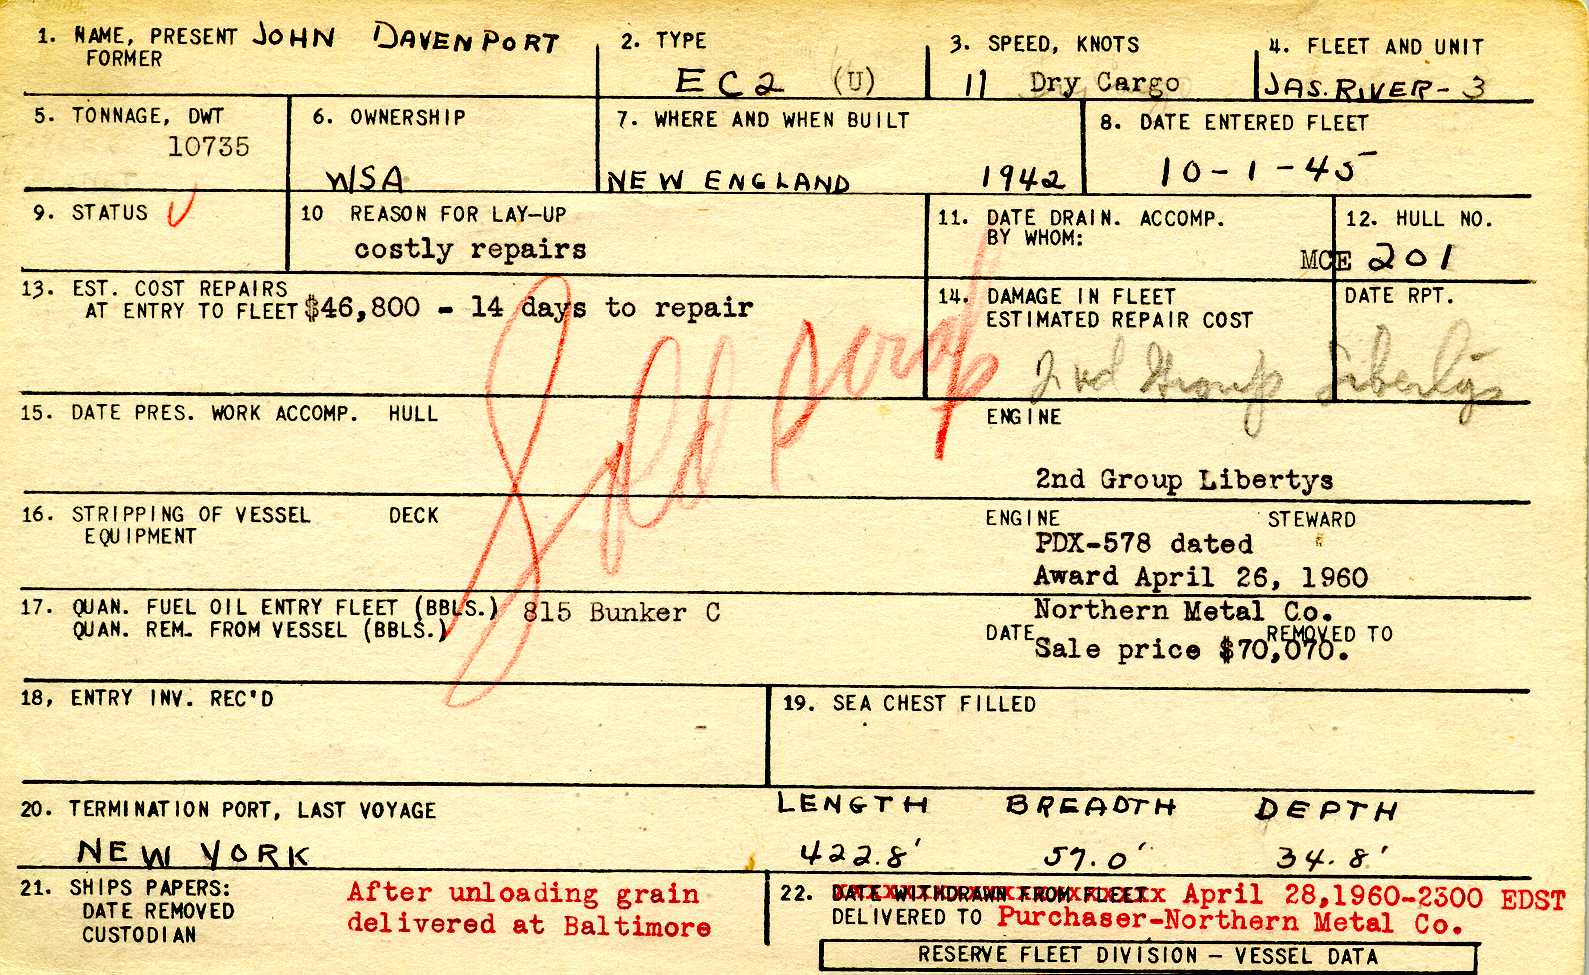 1. NAME, PRESENT JOHN DAVENPORT
FORMER
2. TYPE
EC2 (U)
3. SPEED, KNOTS
11 Dry Cargo
4. FLEET AND UNIT
JAS. RIVER-3
5. TONNAGE, DWT
10735
6. OWNERSHIP
WSA
7. WHERE AND WHEN BUILT
NEW ENGLAND 1942
8. DATE ENTERED FLEET
10-1-45
9. STATUS
10 REASON FOR LAY-UP
costly repairs
11. DATE DRAIN. ACCOMP.
BY WHOM:
12. HULL NO.
MCE 201
13. EST. COST REPAIRS
AT ENTRY TO FLEET $46,800 - 14 days to repair
14. DAMAGE IN FLEET
ESTIMATED REPAIR COST
DATE RPT.
2nd Group Libertys
Sold scrap
15. DATE PRES. WORK ACCOMP. HULL
ENGINE
2nd Group Libertys
16. STRIPPING OF VESSEL DECK
EQUIPMENT
ENGINE STEWARD
PDX-578 dated
Award April 26, 1960
17. QUAN. FUEL OIL ENTRY FLEET (BBLS.) 815 Bunker C
QUAN. REM. FROM VESSEL (BBLS.)
Northern Metal Co.
DATE REMOVED TO
Sale price $70,070.
18, ENTRY INV. REC'D
19. SEA CHEST FILLED
20. TERMINATION PORT, LAST VOYAGE
NEW YORK
LENGTH BREADTH DEPTH
422.8' 57.0' 34.8'
21. SHIPS PAPERS:
DATE REMOVED
CUSTODIAN
After unloading grain
delivered at Baltimore
22. DATE WITHDRAWN FROM FLEET April 28,1960-2300 EDST
DELIVERED TO Purchaser-Northern Metal Co.
RESERVE FLEET DIVISION - VESSEL DATA